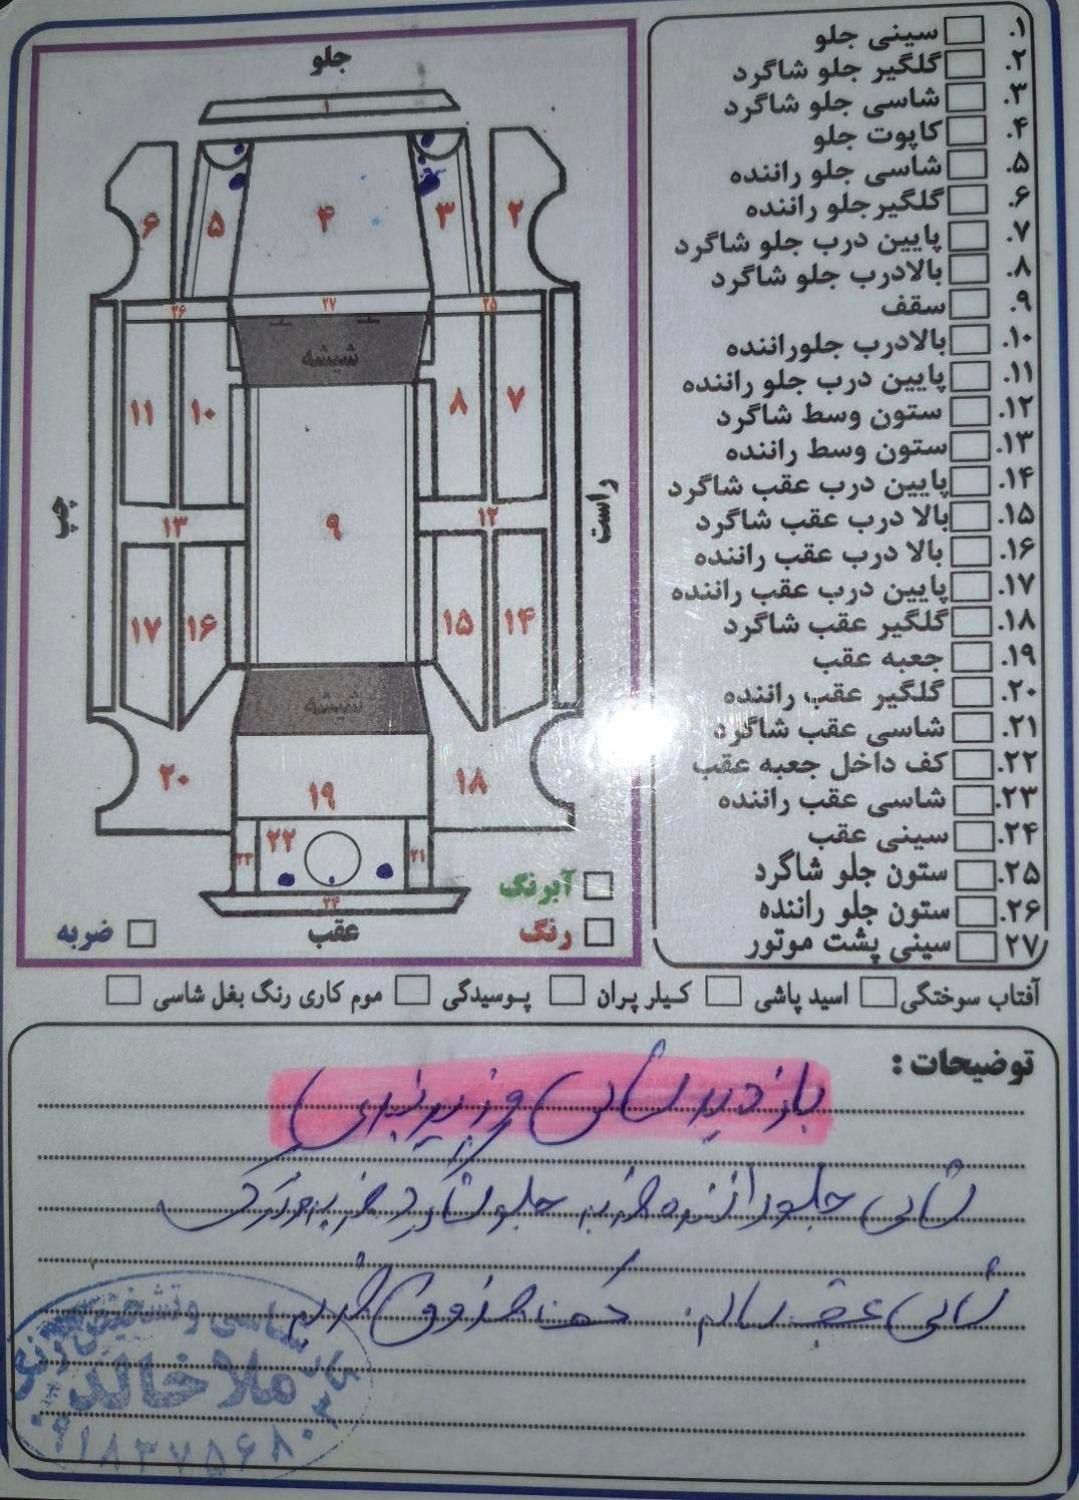 ۱. سینی جلو
۲. گلگیر جلو شاگرد
۳. شاسی جلو شاگرد
۴. کاپوت جلو
۵. شاسی جلو راننده
۶. گلگیر جلو راننده
۷. پایین درب جلو شاگرد
۸. بالادرب جلو شاگرد
۹. سقف
۱۰. بالادرب جلوراننده
۱۱. پایین درب جلو راننده
۱۲. ستون وسط شاگرد
۱۳. ستون وسط راننده
۱۴. پایین درب عقب شاگرد
۱۵. بالا درب عقب شاگرد
۱۶. بالا درب عقب راننده
۱۷. پایین درب عقب راننده
۱۸. گلگیر عقب شاگرد
۱۹. جعبه عقب
۲۰. گلگیر عقب راننده
۲۱. شاسی عقب شاگرد
۲۲. کف داخل جعبه عقب
۲۳. شاسی عقب راننده
۲۴. سینی عقب
۲۵. ستون جلو شاگرد
۲۶. ستون جلو راننده
۲۷. سینی پشت موتور
جلو
۱
۲ ۳ ۴ ۵ ۶
۲۵ ۲۷ ۲۶
شیشه
۷ ۸ ۱۰ ۱۱
راست
چپ
۱۲ ۹ ۱۳
۱۴ ۱۵ ۱۶ ۱۷
شیشه
۱۸ ۱۹ ۲۰
۲۱ ۲۲ ۲۳
۲۴
آبرنگ
رنگ
عقب
ضربه
آفتاب سوختگی اسید پاشی کیلر پران پوسیدگی موم کاری رنگ بغل شاسی
توضیحات :
بازدید شاسی و زیربندی
شاسی جلو راننده ضربه جلو شاگرد ضربه
شاسی عقب سالم. کف صندوق ضربه
ملا خالد